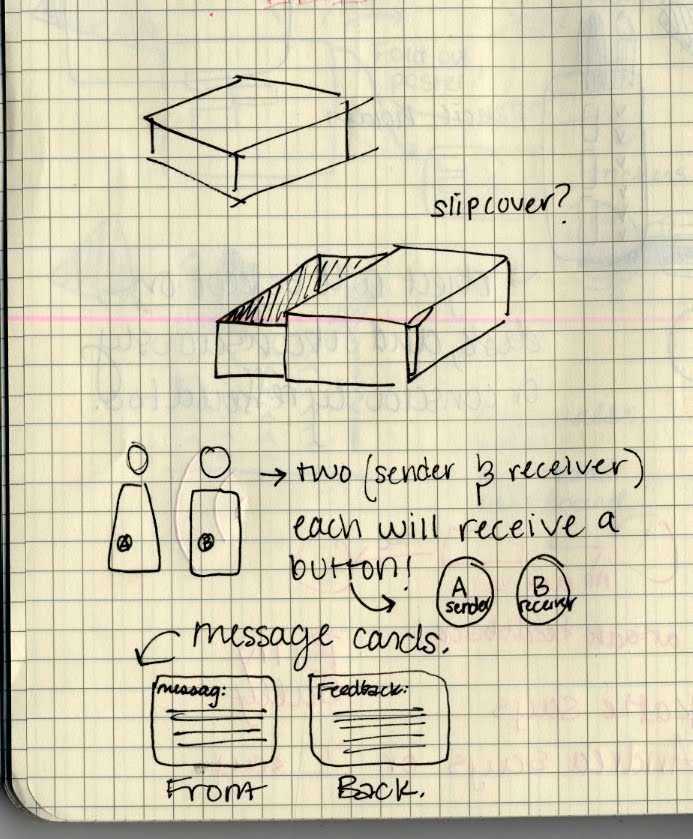 slipcover?
A
B
→ two (sender & receiver)
each will receive a
button!
A
sender
B
receiver
message cards.
messag:
Feedback:
Front
Back.